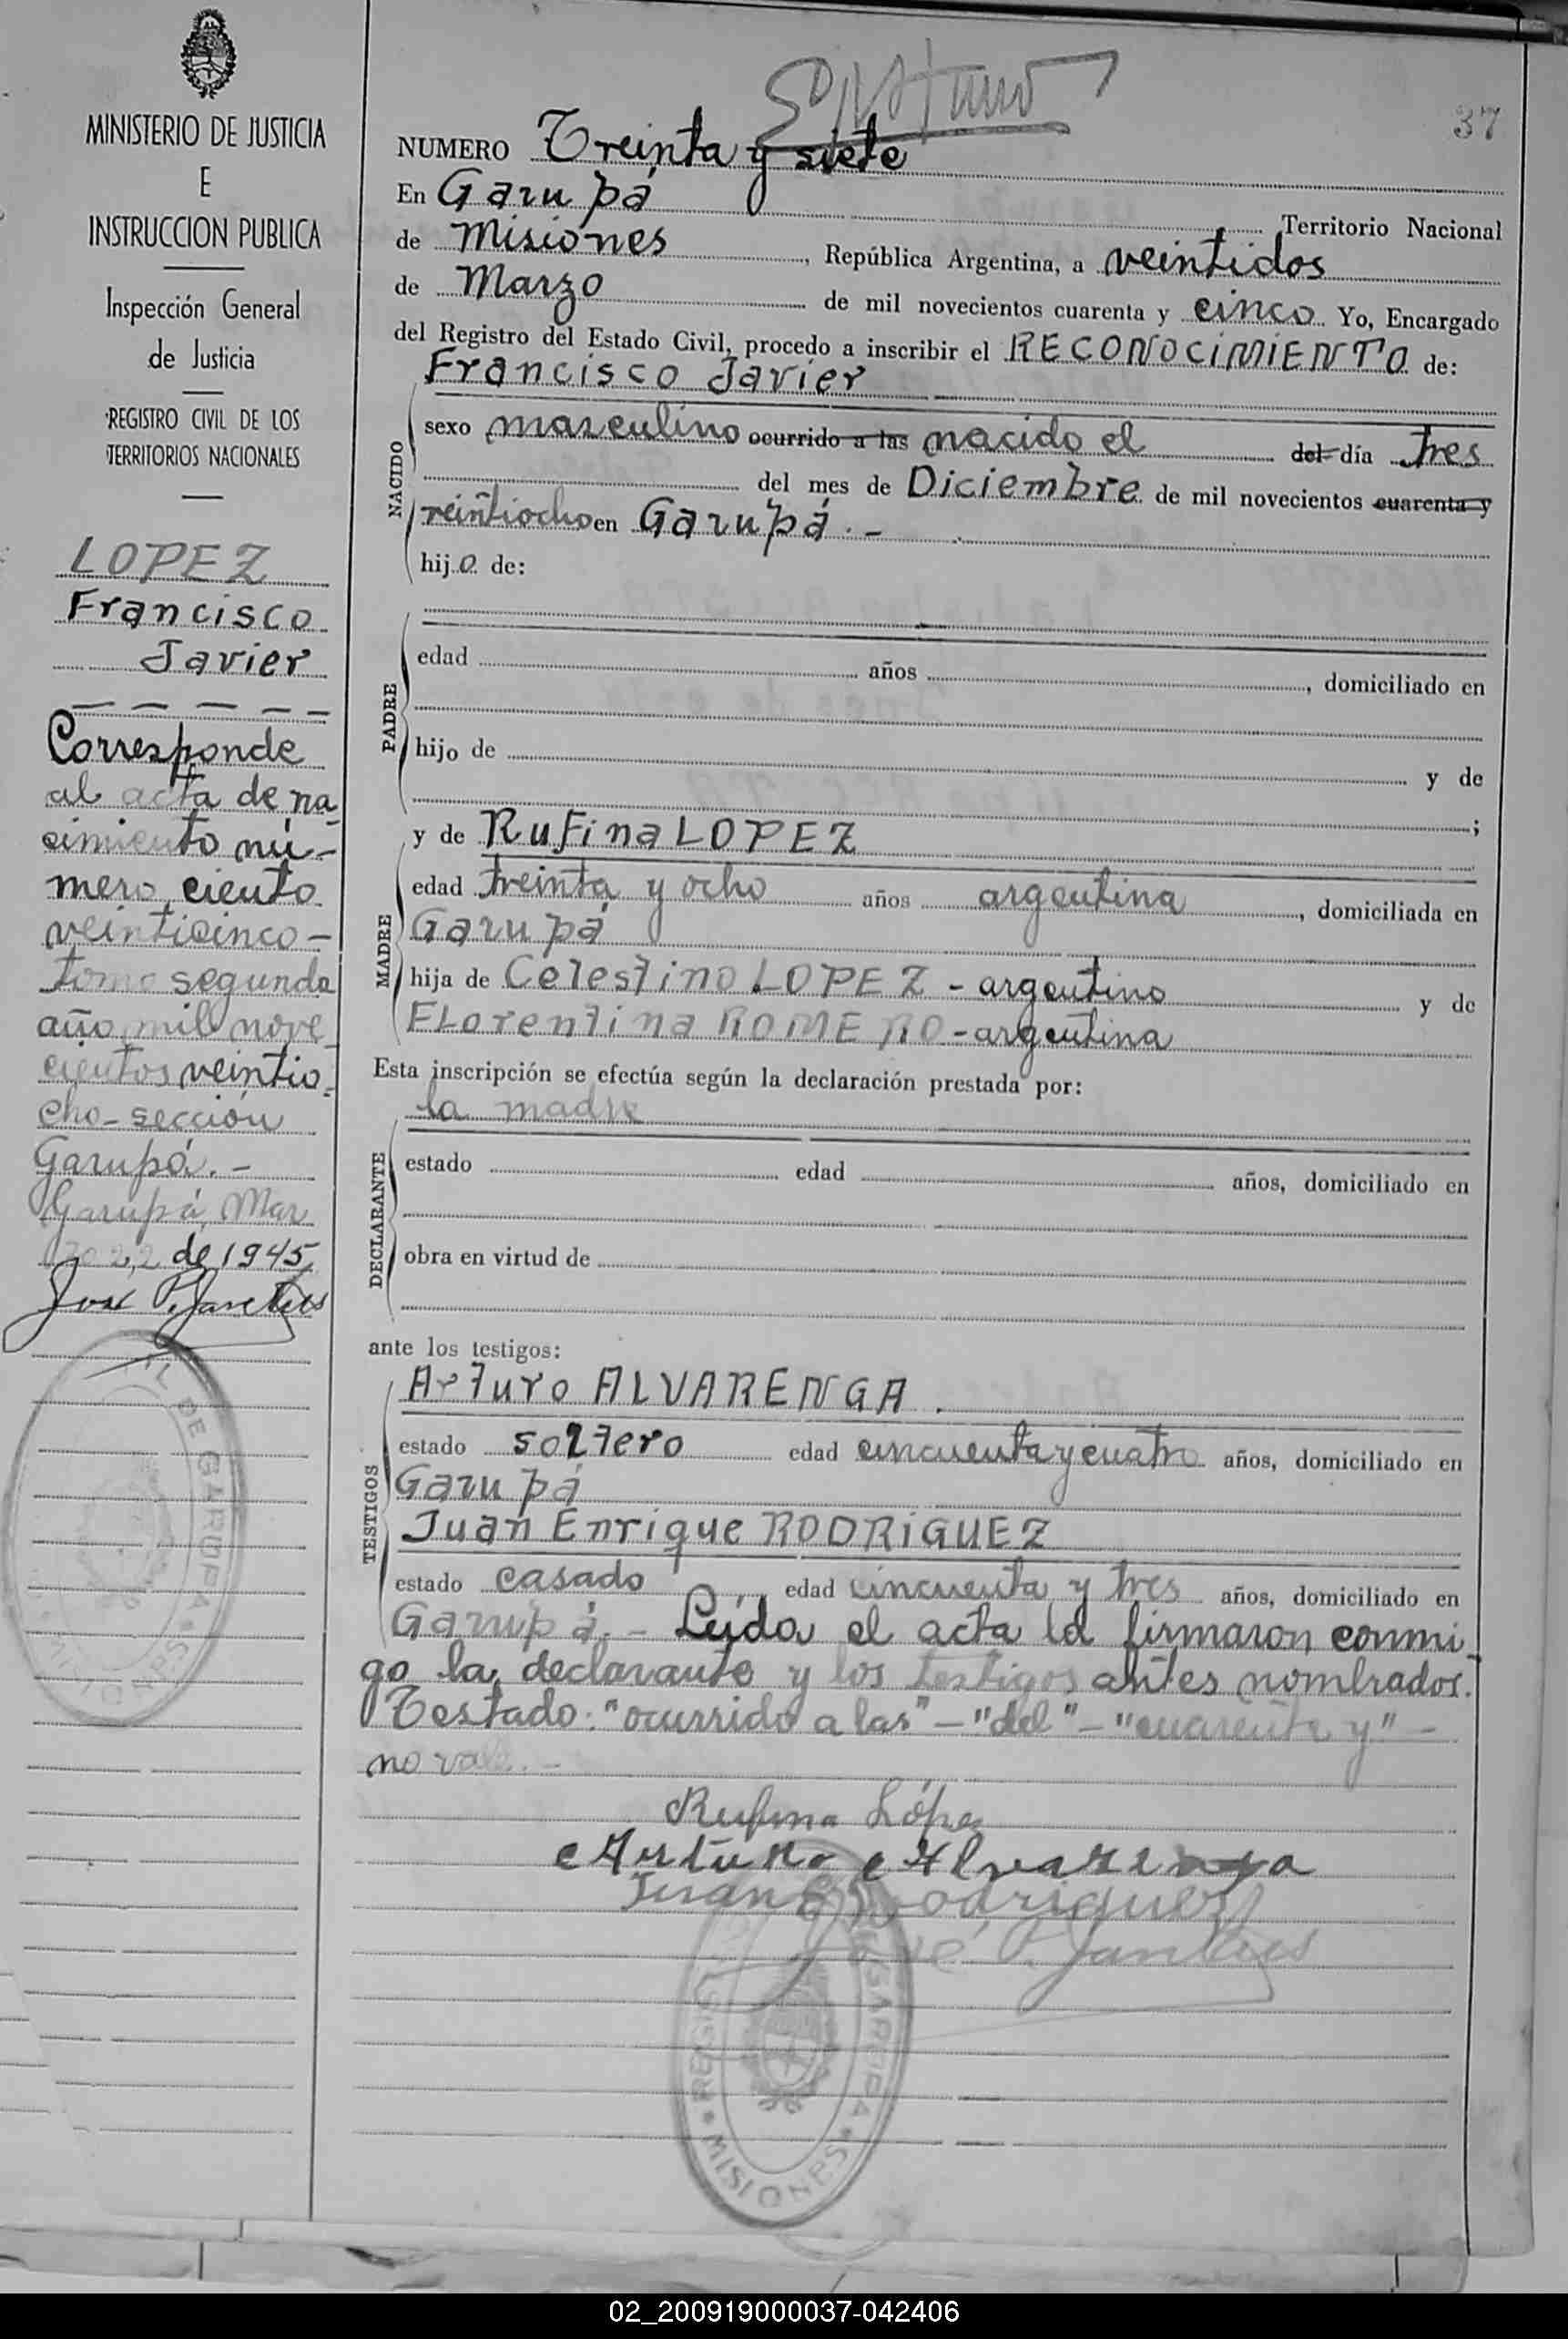 MINISTERIO DE JUSTICIA
E
INSTRUCCION PUBLICA
Inspección General
de Justicia
REGISTRO CIVIL DE LOS
TERRITORIOS NACIONALES
LOPEZ
Francisco
Javier
Corresponde
al acta de na
cimiento nú-
mero, ciento
veinticinco-
tomo segundo
año mil nove-
cientos veintio-
cho-sección
Garupá.-
Garupá, Mar
zo 22 de 1945
DE GARUPA
MISIONES
37
NUMERO Treinta y siete
En Garupá Territorio Nacional
de Misiones, República Argentina, a veintidos
de Marzo de mil novecientos cuarenta y cinco Yo, Encargado
del Registro del Estado Civil, procedo a inscribir el RECONOCIMIENTO de:
Francisco Javier
NACIDO
sexo masculino ocurrido a las nacido el del día tres
del mes de Diciembre de mil novecientos cuarenta y
veintiocho en Garupá.-
hijo de:
PADRE
edad años, domiciliado en
hijo de y de
;
MADRE
y de Rufina LOPEZ
edad treinta y ocho años argentina, domiciliada en
Garupá
hija de Celestino LOPEZ - argentino y de
Florentina ROMERO - argentina
Esta inscripción se efectúa según la declaración prestada por:
la madre
DECLARANTE
estado edad años, domiciliado en
obra en virtud de
ante los testigos:
TESTIGOS
Arturo ALVARENGA.
estado soltero edad cincuenta y cuatro años, domiciliado en
Garupá
Juan Enrique RODRIGUEZ
estado casado edad cincuenta y tres años, domiciliado en
Garupá.- Leída el acta la firmaron conmi-
go la declarante y los testigos antes nombrados.
Testado: "ocurrido a las" - "del" - "cuarenta y" -
no vale.-
Rufina López
Arturo Alvarenga
Juan E Rodriguez
José P.
GARUPA
MISIONES
02_200919000037-042406